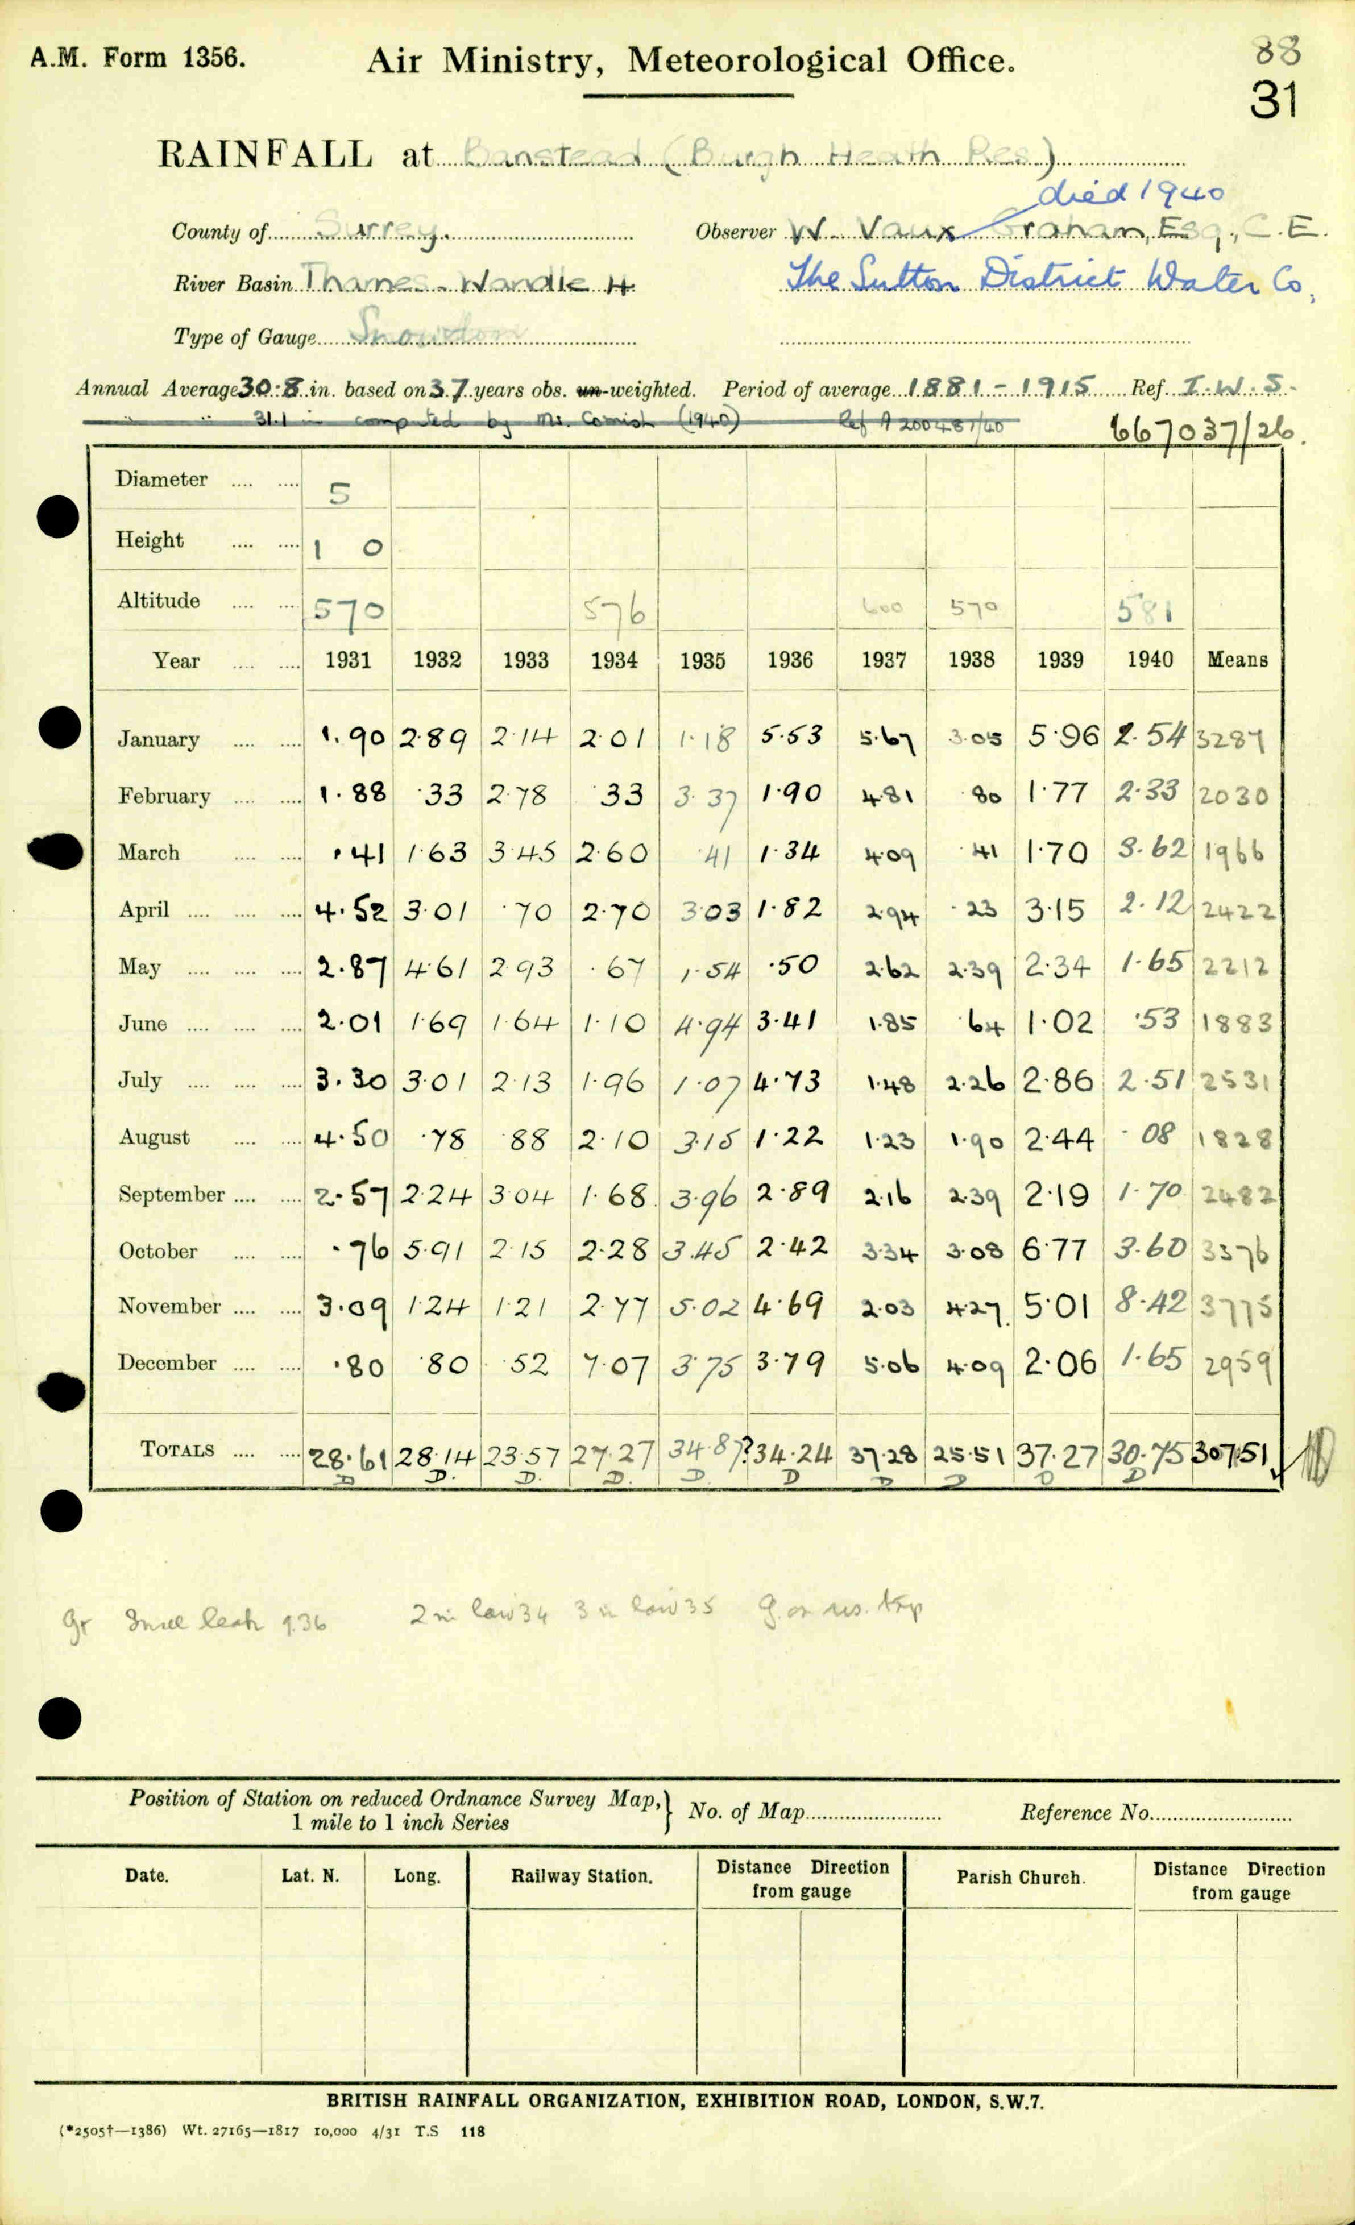 A.M. Form 1356. Air Ministry, Meteorological Office. 88
31
RAINFALL at Banstead (Burgh Heath Res)
died 1940
County of Surrey. Observer W. Vaux Graham, Esq., C.E.
River Basin Thames - Wandle 4 The Sutton District Water Co.
Type of Gauge Snowdon
Annual Average 30.8 in. based on 37 years obs. un-weighted. Period of average 1881 - 1915 Ref. I.W.S.
" " 31.1 in computed by Mr. Cornish (1940) Ref A 200487/40 667037/26.
Diameter 5
Height 1 0
Altitude 570 576 600 570 581
Year 1931 1932 1933 1934 1935 1936 1937 1938 1939 1940 Means
January 1.90 2.89 2.14 2.01 1.18 5.53 5.67 3.05 5.96 2.54 3287
February 1.88 .33 2.78 .33 3.37 1.90 4.81 .80 1.77 2.33 2030
March .41 1.63 3.45 2.60 .41 1.34 4.09 .41 1.70 3.62 1966
April 4.52 3.01 .70 2.70 3.03 1.82 2.94 .23 3.15 2.12 2422
May 2.87 4.61 2.93 .67 1.54 .50 2.62 2.39 2.34 1.65 2212
June 2.01 1.69 1.64 1.10 4.94 3.41 1.85 .64 1.02 .53 1883
July 3.30 3.01 2.13 1.96 1.07 4.73 1.48 2.26 2.86 2.51 2531
August 4.50 .78 .88 2.10 3.15 1.22 1.23 1.90 2.44 .08 1828
September 2.57 2.24 3.04 1.68 3.96 2.89 2.16 2.39 2.19 1.70 2482
October .76 5.91 2.15 2.28 3.45 2.42 3.34 3.08 6.77 3.60 3376
November 3.09 1.24 1.21 2.77 5.02 4.69 2.03 4.27 5.01 8.42 3775
December .80 .80 .52 7.07 3.75 3.79 5.06 4.09 2.06 1.65 2959
TOTALS 28.61 28.14 23.57 27.27 34.87? 34.24 37.28 25.51 37.27 30.75 30751
D D. D. D. D. D D D D D
Gr Small leak 9.36 2 in law 34 3 in law 35 G. on res. top
Position of Station on reduced Ordnance Survey Map,} No. of Map Reference No.
1 mile to 1 inch Series
Date. Lat. N. Long. Railway Station. Distance Direction from gauge Parish Church. Distance Direction from gauge
BRITISH RAINFALL ORGANIZATION, EXHIBITION ROAD, LONDON, S.W.7.
(*2505†—1386) Wt. 27165—1817 10,000 4/31 T.S 118